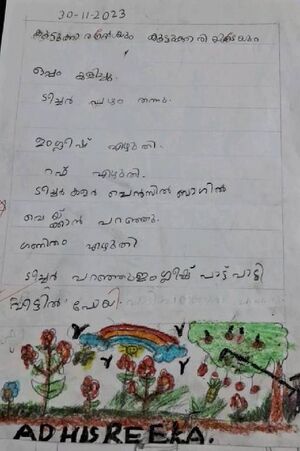 30-11-2023
കൂട്ടുക്കാരന്റെയും കൂട്ടുക്കാരിയുടെയും
ഒപ്പം കളിച്ചു.
ടീച്ചർ പഴം തന്നു.
ഇംഗ്ലീഷ് എഴുതി.
റഫ് എഴുതി.
ടീച്ചർ കളർ പെൻസിൽ ബാഗിൽ
വെയ്ക്കാൻ പറഞ്ഞു.
ഗണിതം എഴുതി
ടീച്ചർ പറഞ്ഞു ഇംഗ്ലീഷ് പാട്ട് പാട്ടി
വീട്ടിൽ പോയി.
ADHISREEKA.